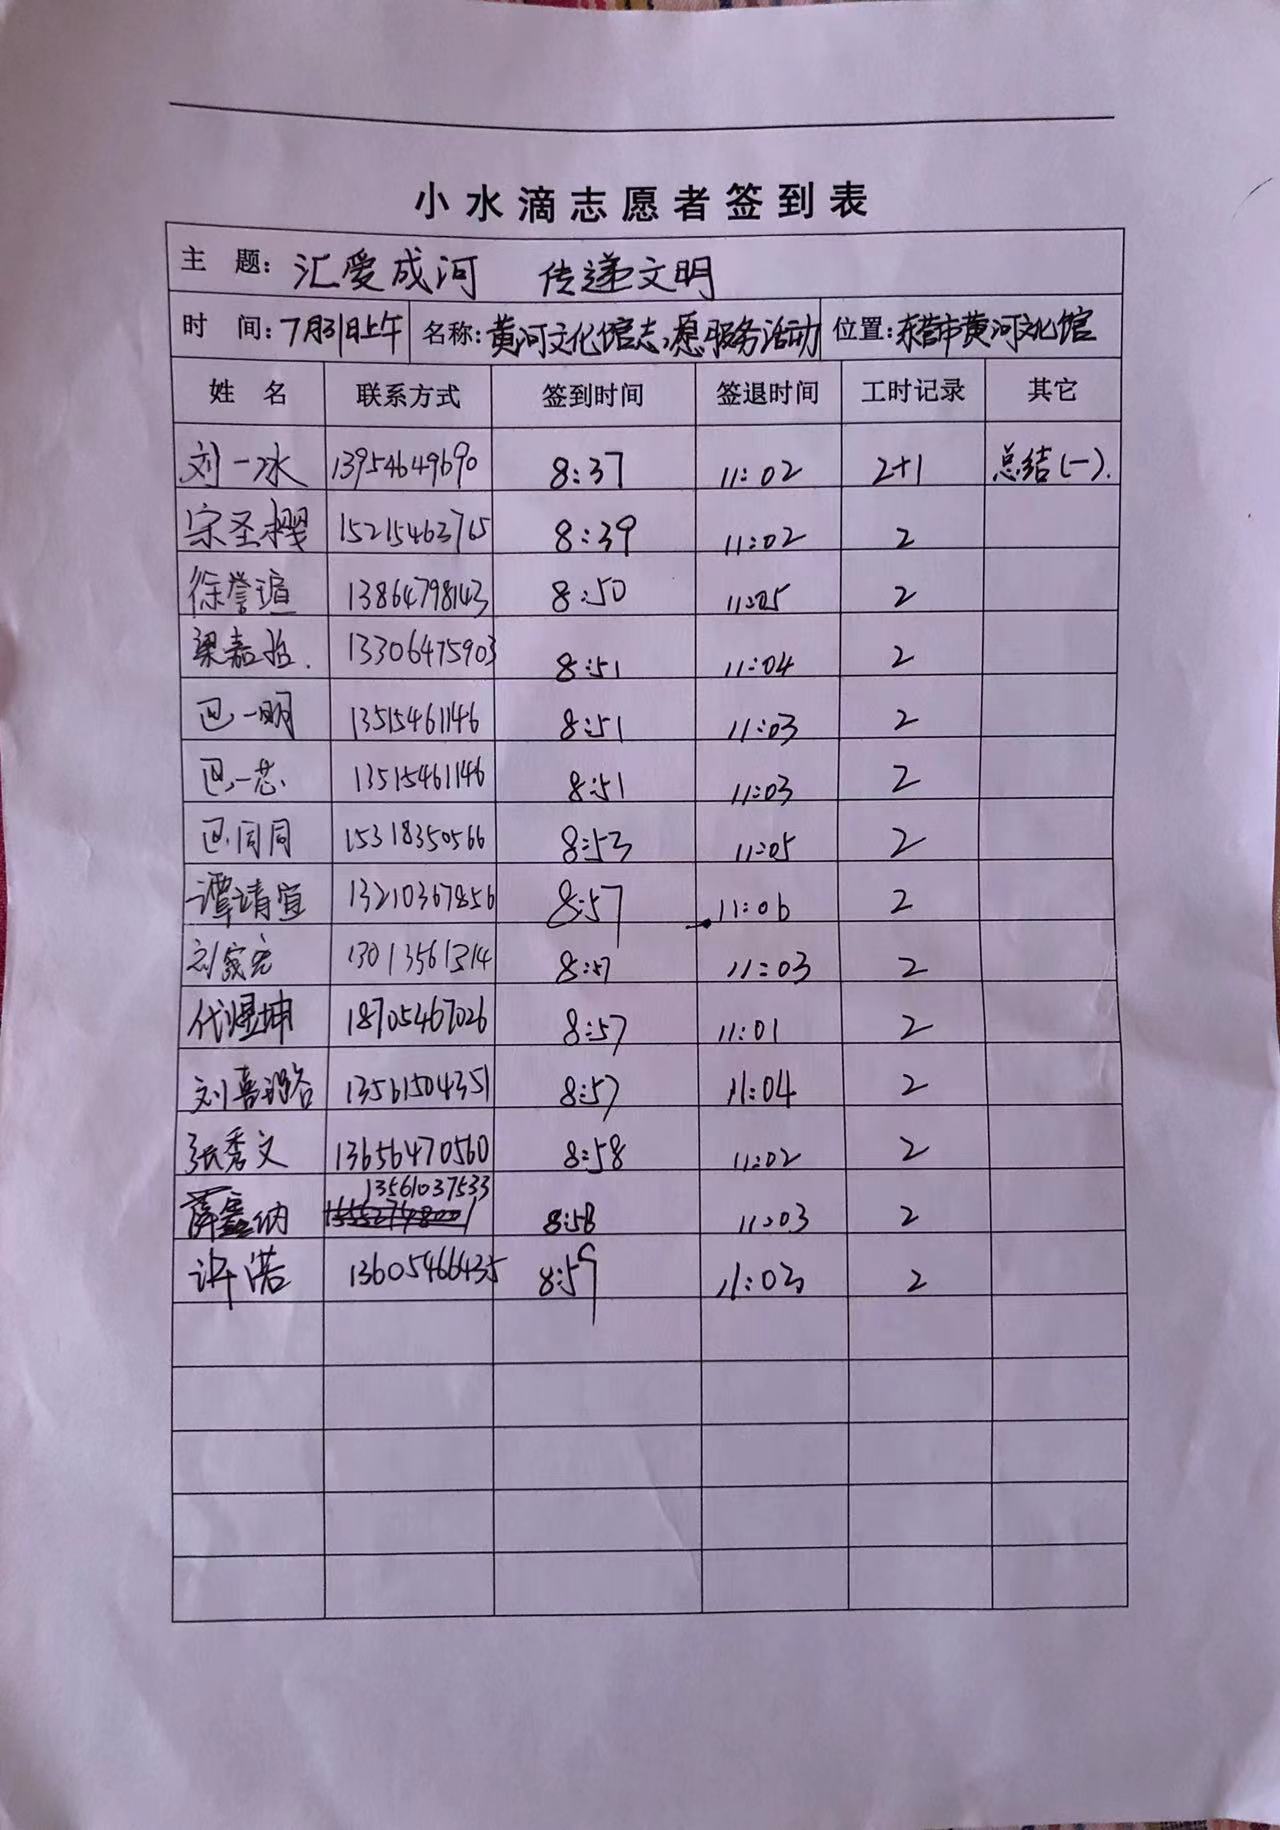 小水滴志愿者签到表
主 题：汇爱成河 传递文明
时 间：7月31日上午 名称：黄河文化馆志愿服务活动 位置：东营市黄河文化馆
姓 名 联系方式 签到时间 签退时间 工时记录 其它
刘一冰 13954649690 8:37 11:02 2+1 总结(一).
宗圣樱 15215463765 8:39 11:02 2
徐誉 13864798143 8:50 11:05 2
梁嘉 13306475903 8:51 11:04 2
巴一明 13515461146 8:51 11:03 2
巴一芯 13515461146 8:51 11:03 2
巴同同 15318350566 8:53 11:05 2
谭靖宜 13210367856 8:57 11:06 2
刘家宏 13013561314 8:57 11:03 2
代煜坤 18705467026 8:57 11:01 2
刘喜 13561504351 8:57 11:04 2
张秀文 13656470560 8:58 11:02 2
薛鑫纳 13561037533 8:58 11:03 2
许诺 13605466435 8:59 11:03 2